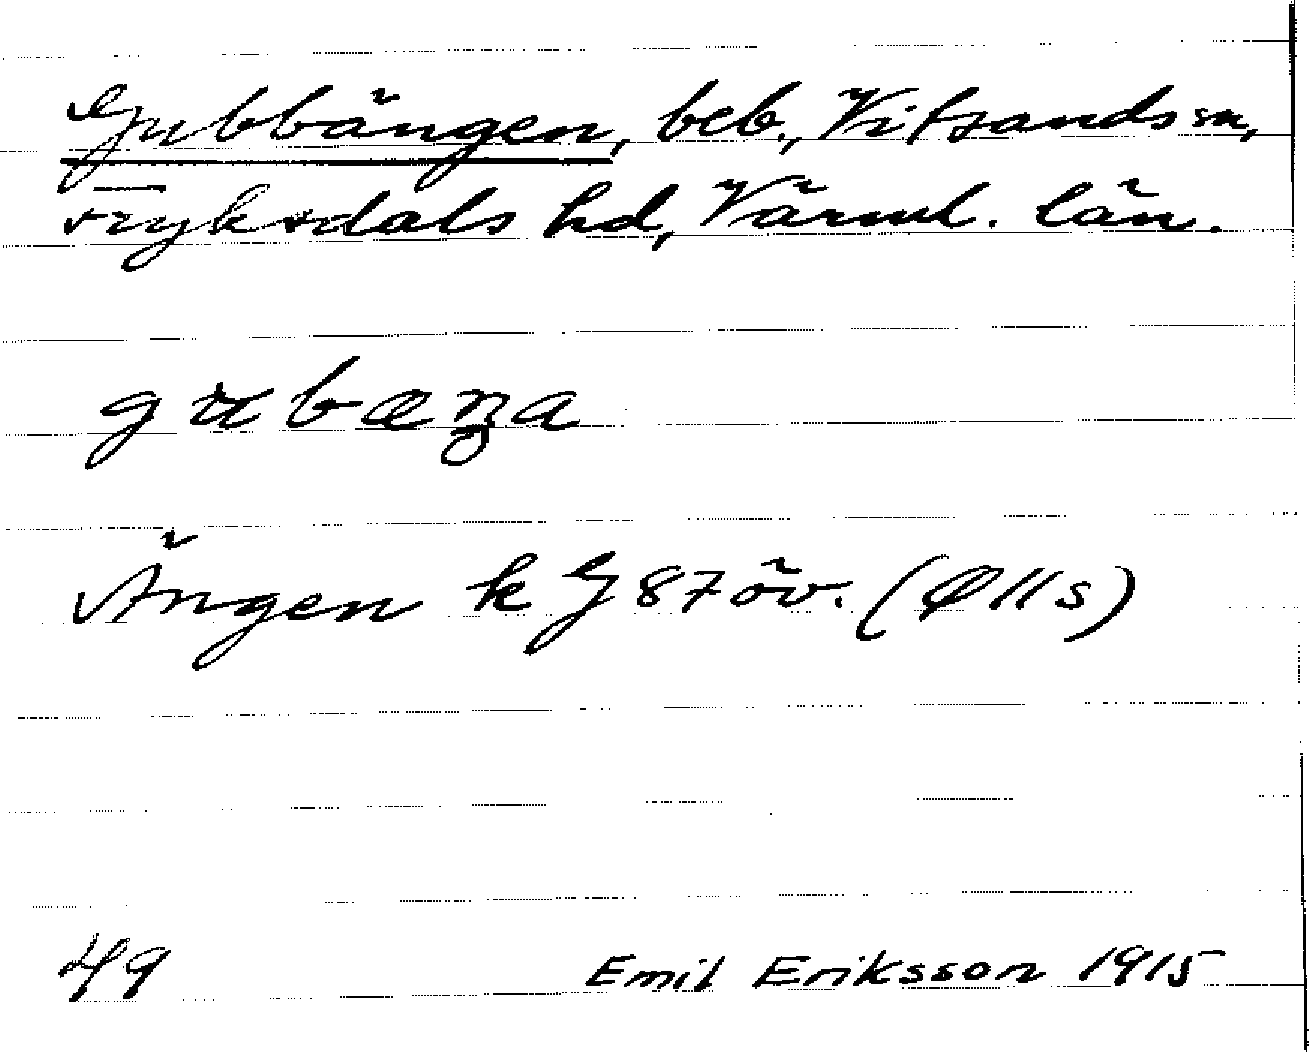 Gubbängen, beb., Vitsands sn,
Fryksdals hd, Värml. län.
gubæŋa
Ängen k J 87 öv. (Ø 11 s)
49 Emil Eriksson 1915